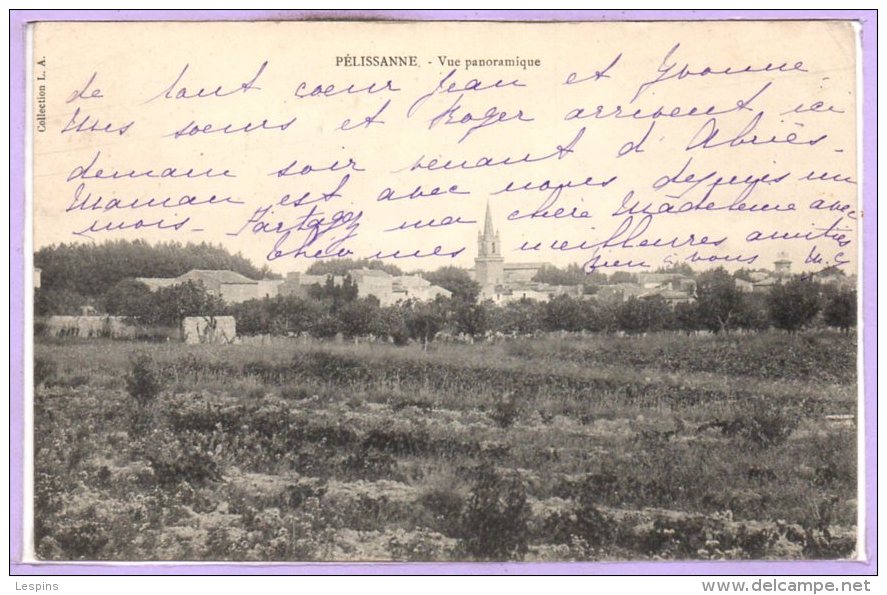 Collection L. A.
PÉLISSANNE. - Vue panoramique
de tout cœur Jean et Yvonne
Mes sœurs et Roger arrivent ici
demain soir venant d'Abriès
Maman est avec nous depuis un
mois. Partagez ma chère Madeleine avec
les meilleures amitiés
bien à vous M.C
Lespins
www.delcampe.net